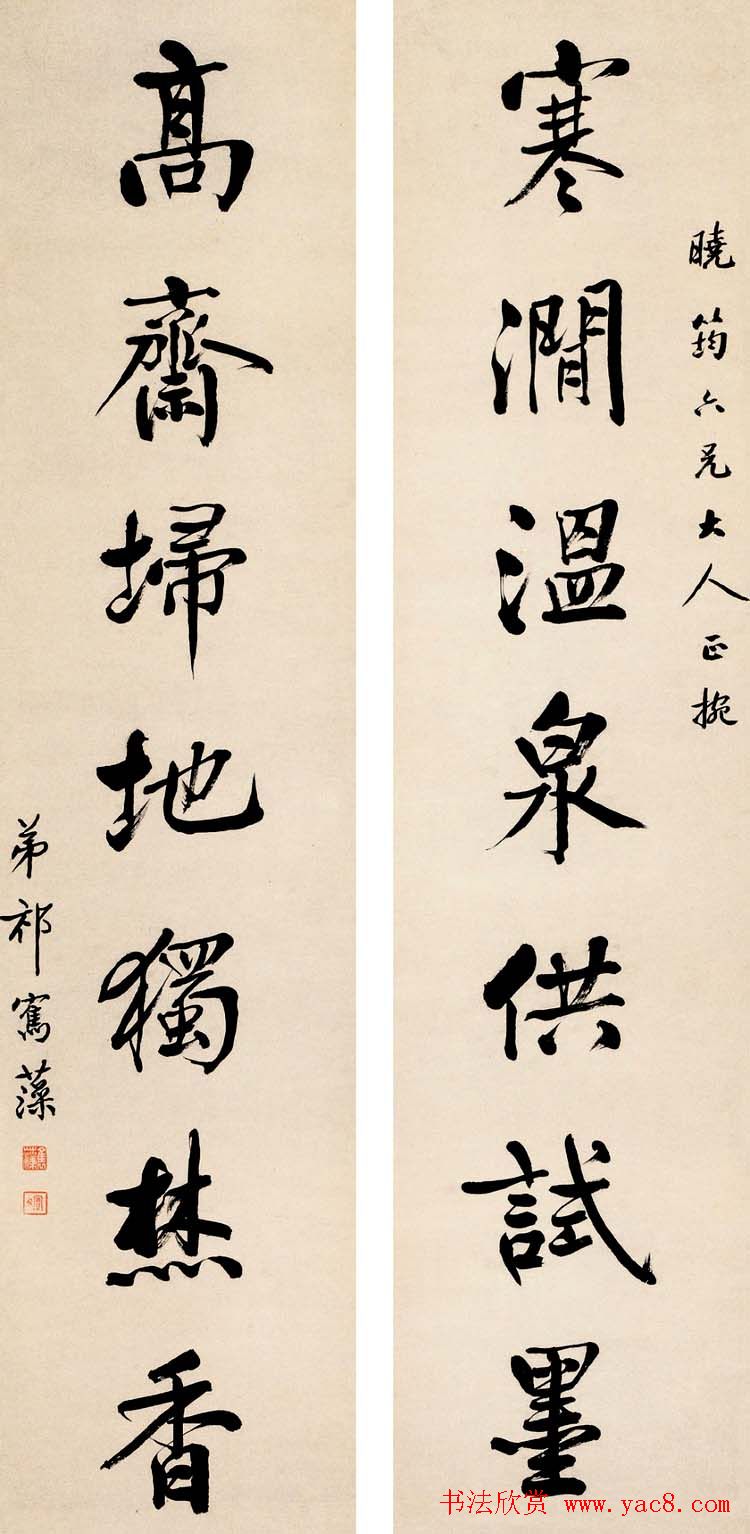 曉筠六兄大人正捥
寒澗溫泉供試墨
髙齋埽地獨焚香
弟祁寯藻
书法欣赏 www.yac8.com